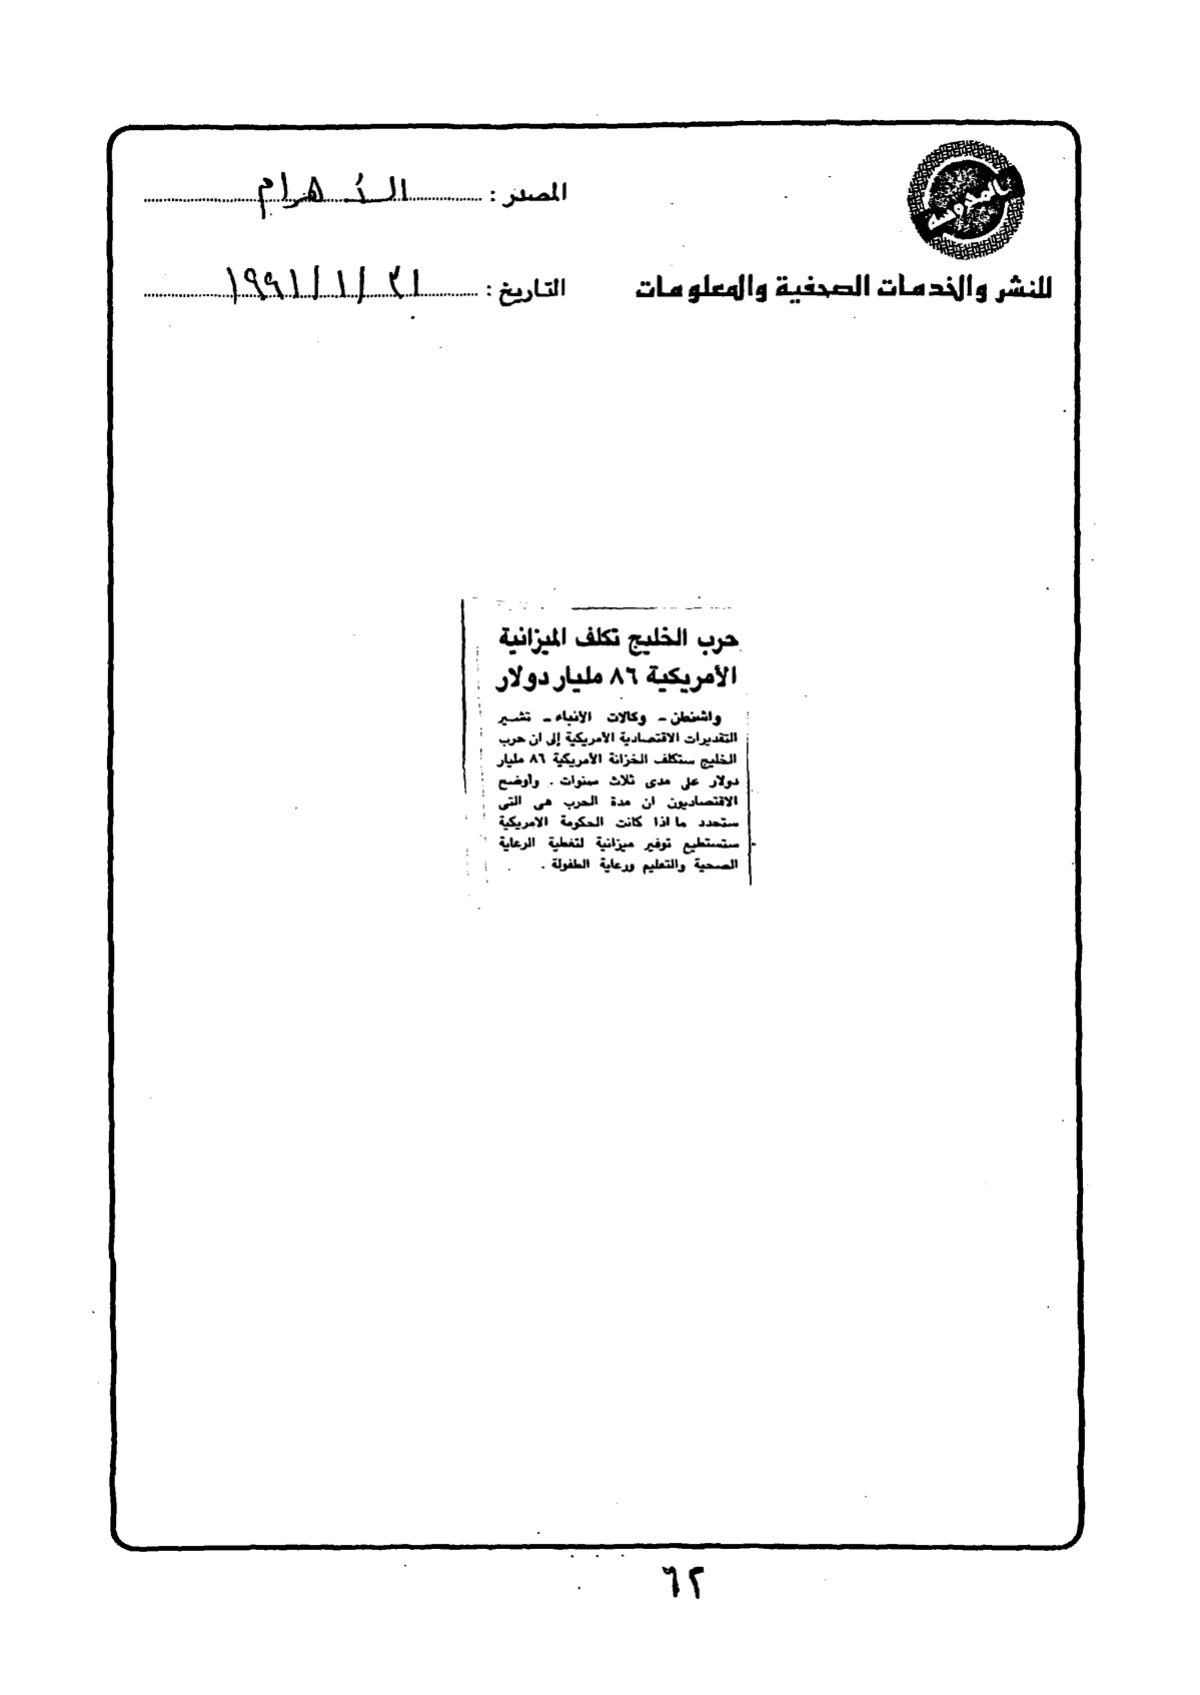 المصدر : الأهرام
للنشر والخدمات الصحفية والمعلومات
التاريخ : ٣١ / ١ / ١٩٩١
حرب الخليج تكلف الميزانية
الأمريكية ٨٦ مليار دولار
واشنطن ـ وكالات الأنباء ـ تشير
التقديرات الاقتصادية الأمريكية إلى ان حرب
الخليج ستكلف الخزانة الأمريكية ٨٦ مليار
دولار على مدى ثلاث سنوات . وأوضح
الاقتصاديون ان مدة الحرب هى التى
ستحدد ما اذا كانت الحكومة الامريكية
ستستطيع توفير ميزانية لتغطية الرعاية
الصحية والتعليم ورعاية الطفولة .
٦٢